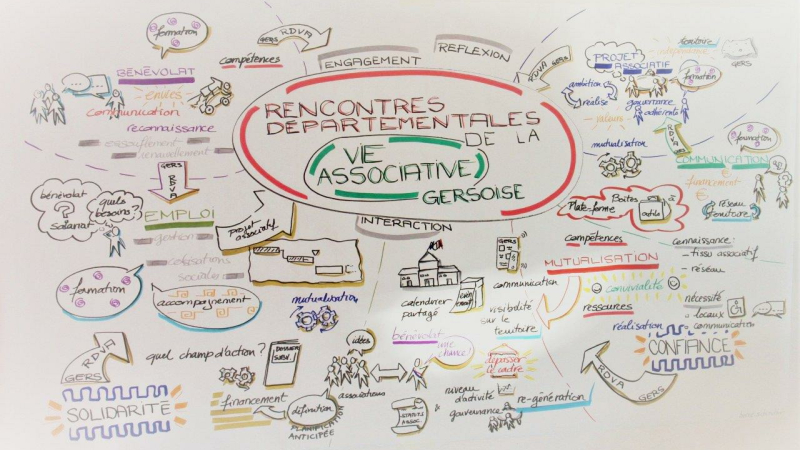 formation
GERS RDVA
compétences
BÉNÉVOLAT
envies
communication
reconnaissance
essoufflement
renouvellement
GERS
RDVA
ENGAGEMENT
REFLEXION
RENCONTRES
DÉPARTEMENTALES
DE LA
VIE
ASSOCIATIVE
GERSOISE
INTERACTION
RDVA GERS
PROJET
ASSOCIATIF
territoire
GERS
formation
ambition
réaliste
gouvernance
adhérents
valeurs
mutualisation
RDVA
formation
COMMUNICATION
financement
€
€
réseau
territoire
bénévolat
?
salariat
quels
besoins ?
EMPLOI
gestion
cotisations
sociales
projet
associatif
formation
accompagnement
mutualisation
calendrier
partagé
GERS
communication
visibilité
sur le
territoire
Plate-forme
Boîtes
à
outils
compétences
MUTUALISATION
convivialité
ressources
connaissance :
- tissu associatif
- réseau
nécessité
- locaux
- communication
réalisation
CONFIANCE
RDVA
GERS
RDVA
GERS
SOLIDARITÉ
quel champ d'action ?
DOSSIER
SUBV.
financement
définition
PLANIFICATION
ANTICIPÉE
idées
associations
bénévolat
une
chance !
dépasser
le cadre
niveau
d'activité
gouvernance
STATUTS
ASSOC.
re-génération